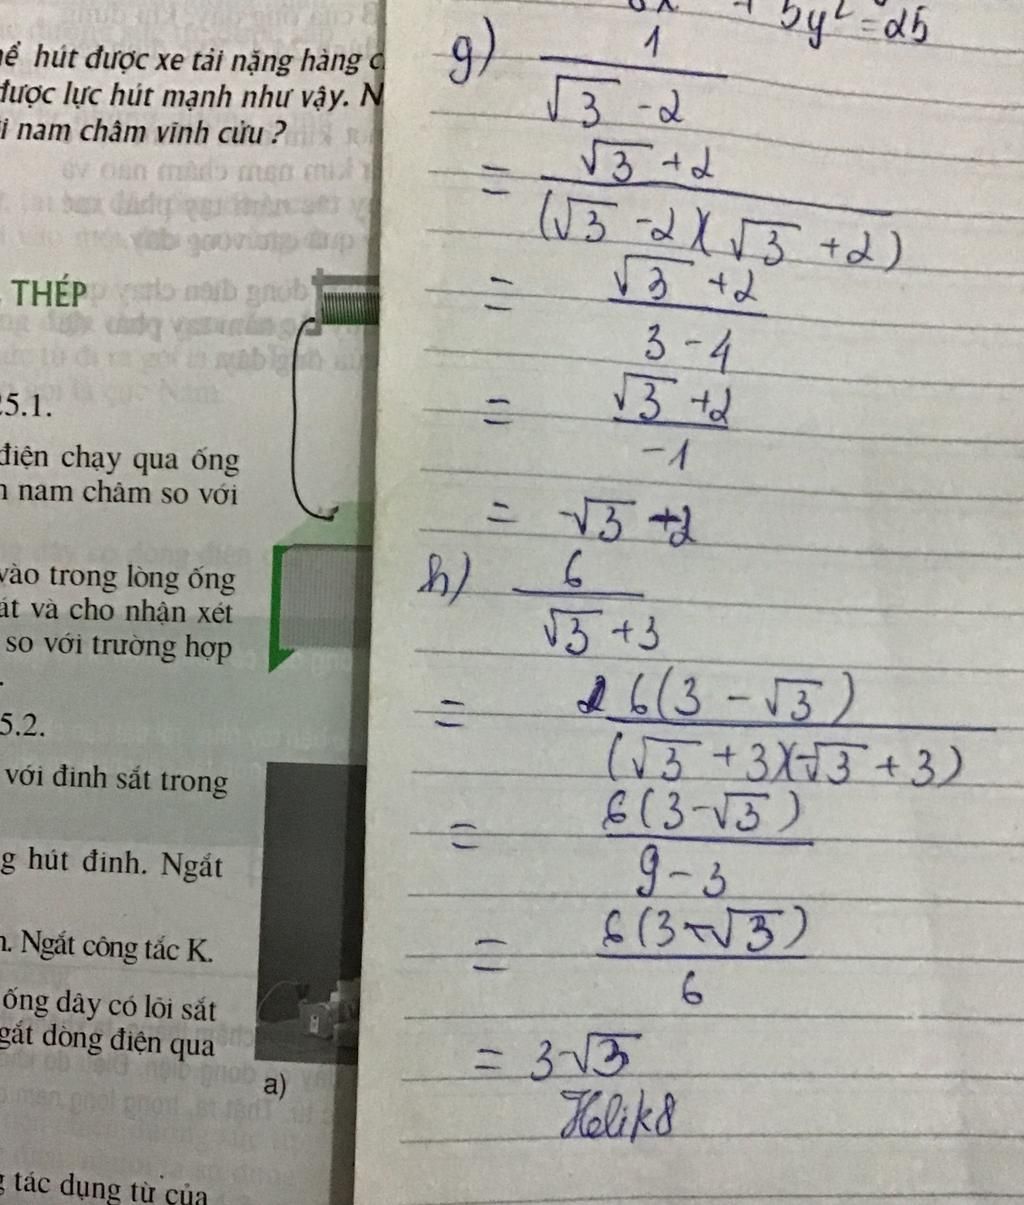 ể hút được xe tải nặng hàng c
được lực hút mạnh như vậy. N
i nam châm vĩnh cửu ?
THÉP
25.1.
điện chạy qua ống
nam châm so với
vào trong lòng ống
át và cho nhận xét
so với trường hợp
5.2.
với đinh sắt trong
g hút đinh. Ngắt
n. Ngắt công tắc K.
ống dây có lõi sắt
gắt dòng điện qua
a)
g tác dụng từ của
+ 5y² = 25
g) 1
√3 - 2
= √3 + 2
(√3 - 2)(√3 + 2)
= √3 + 2
3 - 4
= √3 + 2
-1
= -√3 + 2
h) 6
√3 + 3
= 6(3 - √3)
(√3 + 3)(-√3 + 3)
= 6(3 - √3)
9 - 3
= 6(3 - √3)
6
= 3 - √3
Helik8